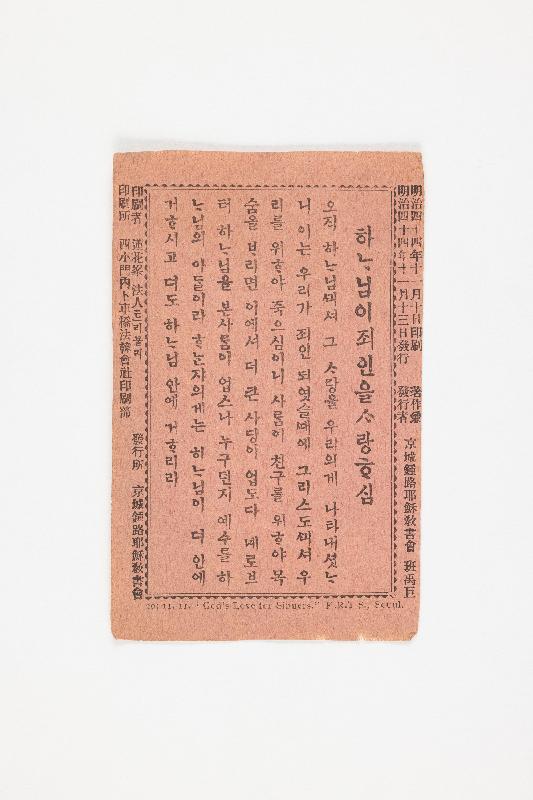 明治四十四年十一月十日印刷
明治四十四年十一月十三日發行
著作兼
發行者
京城鍾路耶穌敎書會 班禹巨
하ᄂᆞ님이죄인을ᄉᆞ랑ᄒᆞ심
오직 하ᄂᆞ님ᄭᅴ셔 그 ᄉᆞ랑을 우리의게 나타내셧ᄂᆞ
니 이는 우리가 죄인 되엿슬ᄯᅢ에 그리스도ᄭᅴ셔 우
리를 위ᄒᆞ야 죽으심이니 사ᄅᆞᆷ이 친구를 위ᄒᆞ야 목
숨을 ᄇᆞ리면 이에셔 더 큰 사랑이 업도다 네로브
터 하ᄂᆞ님을 본사ᄅᆞᆷ이 업스나 누구던지 예수를 하
ᄂᆞ님의 아ᄃᆞᆯ이라 ᄒᆞᄂᆞᆫ쟈의게는 하ᄂᆞ님이 더 안에
거ᄒᆞ시고 더도 하ᄂᆞ님 안에 거ᄒᆞ리라
印刷者 蓮花峯 法人
印刷所 西小門內 法韓會社印刷部
發行所 京城鍾路耶穌敎書會
11. 11. "God's Love for Sinners." K.R.T S., Seoul.